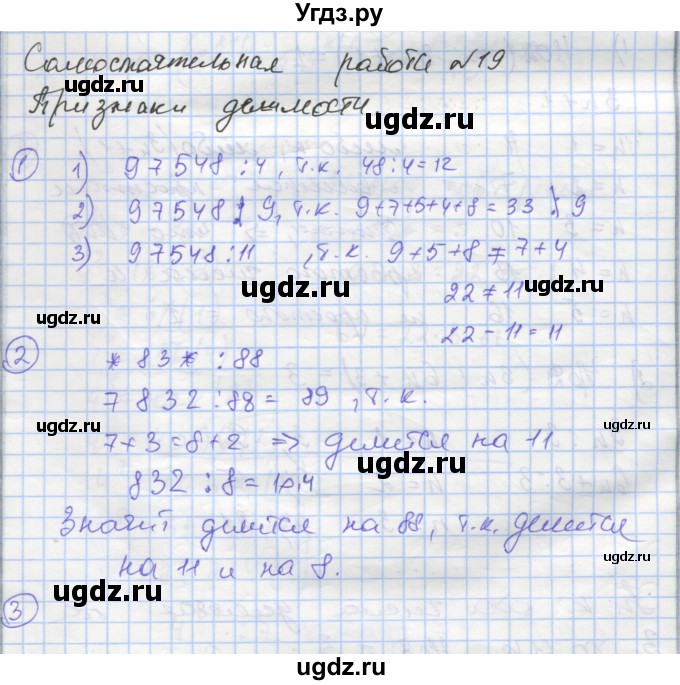 Угдз.ру
Самостоятельная работа №19
Признаки делимости
ugdz.ru ugdz.ru
1 1) 97548 : 4, т.к. 48:4=12
2) 97548 9, т.к. 9+7+5+4+8=33 9
ugdz.ru ugdz.ru
3) 97548 : 11, т.к. 9+5+8≠7+4
ugdz.ru
22≠11
ugdz.ru ugdz.ru
22-11=11
2 *83* : 88
7832 : 88 = 89, т.к.
ugdz.ru ugdz.ru
7+3=8+2 => делится на 11
ugdz.ru
832 : 8 = 104
ugdz.ru
Значит делится на 88, т.к. делится
на 11 и на 8.
ugdz.ru ugdz.ru
3
ugdz.ru
ugdz.ru